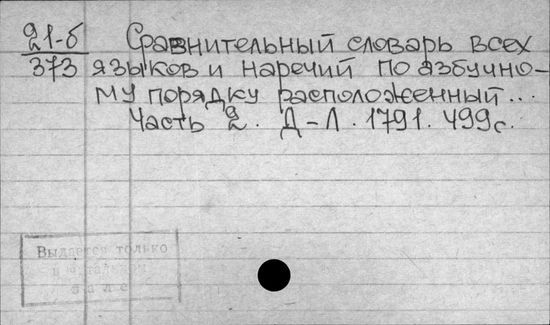 21-б
373
Сравнительный словарь всех
языков и наречий по азбучно-
му порядку расположенный...
Часть 2. Д-Л. 1791. 499с.
Выдается только
в читальном
зале